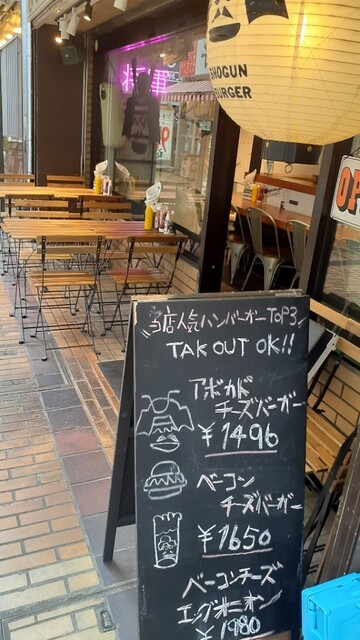 SHOGUN
BURGER
将軍
OPE
当店人気ハンバーガーTOP3
TAKOUT OK!!
アボカド
チーズバーガー
¥1496
ベーコン
チーズバーガー
¥1650
ベーコンチーズ
エッグオニオン
¥1980